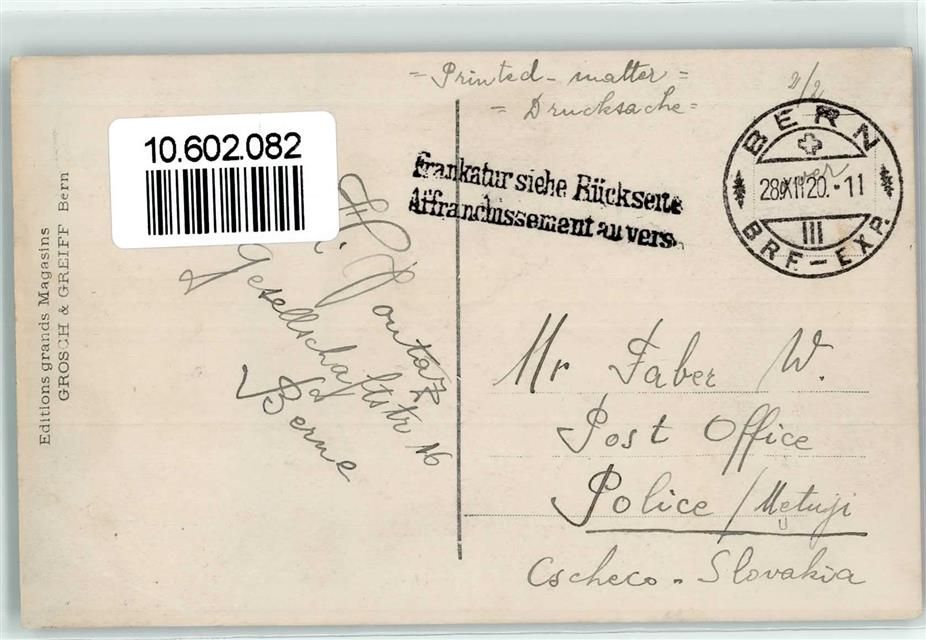 = Printed - matter =
= Drucksache =
2/2
10.602.082
Frankatur siehe Rückseite
Affranchissement au verso
BERN
28.XII.20.-11
III
BRF.-EXP.
Editions grands Magasins
GROSCH & GREIFF Bern
H.
Gesellschaftstr 16
Berne
Mr Faber W.
Post Office
Police / Metuji
Cscheco - Slovakia